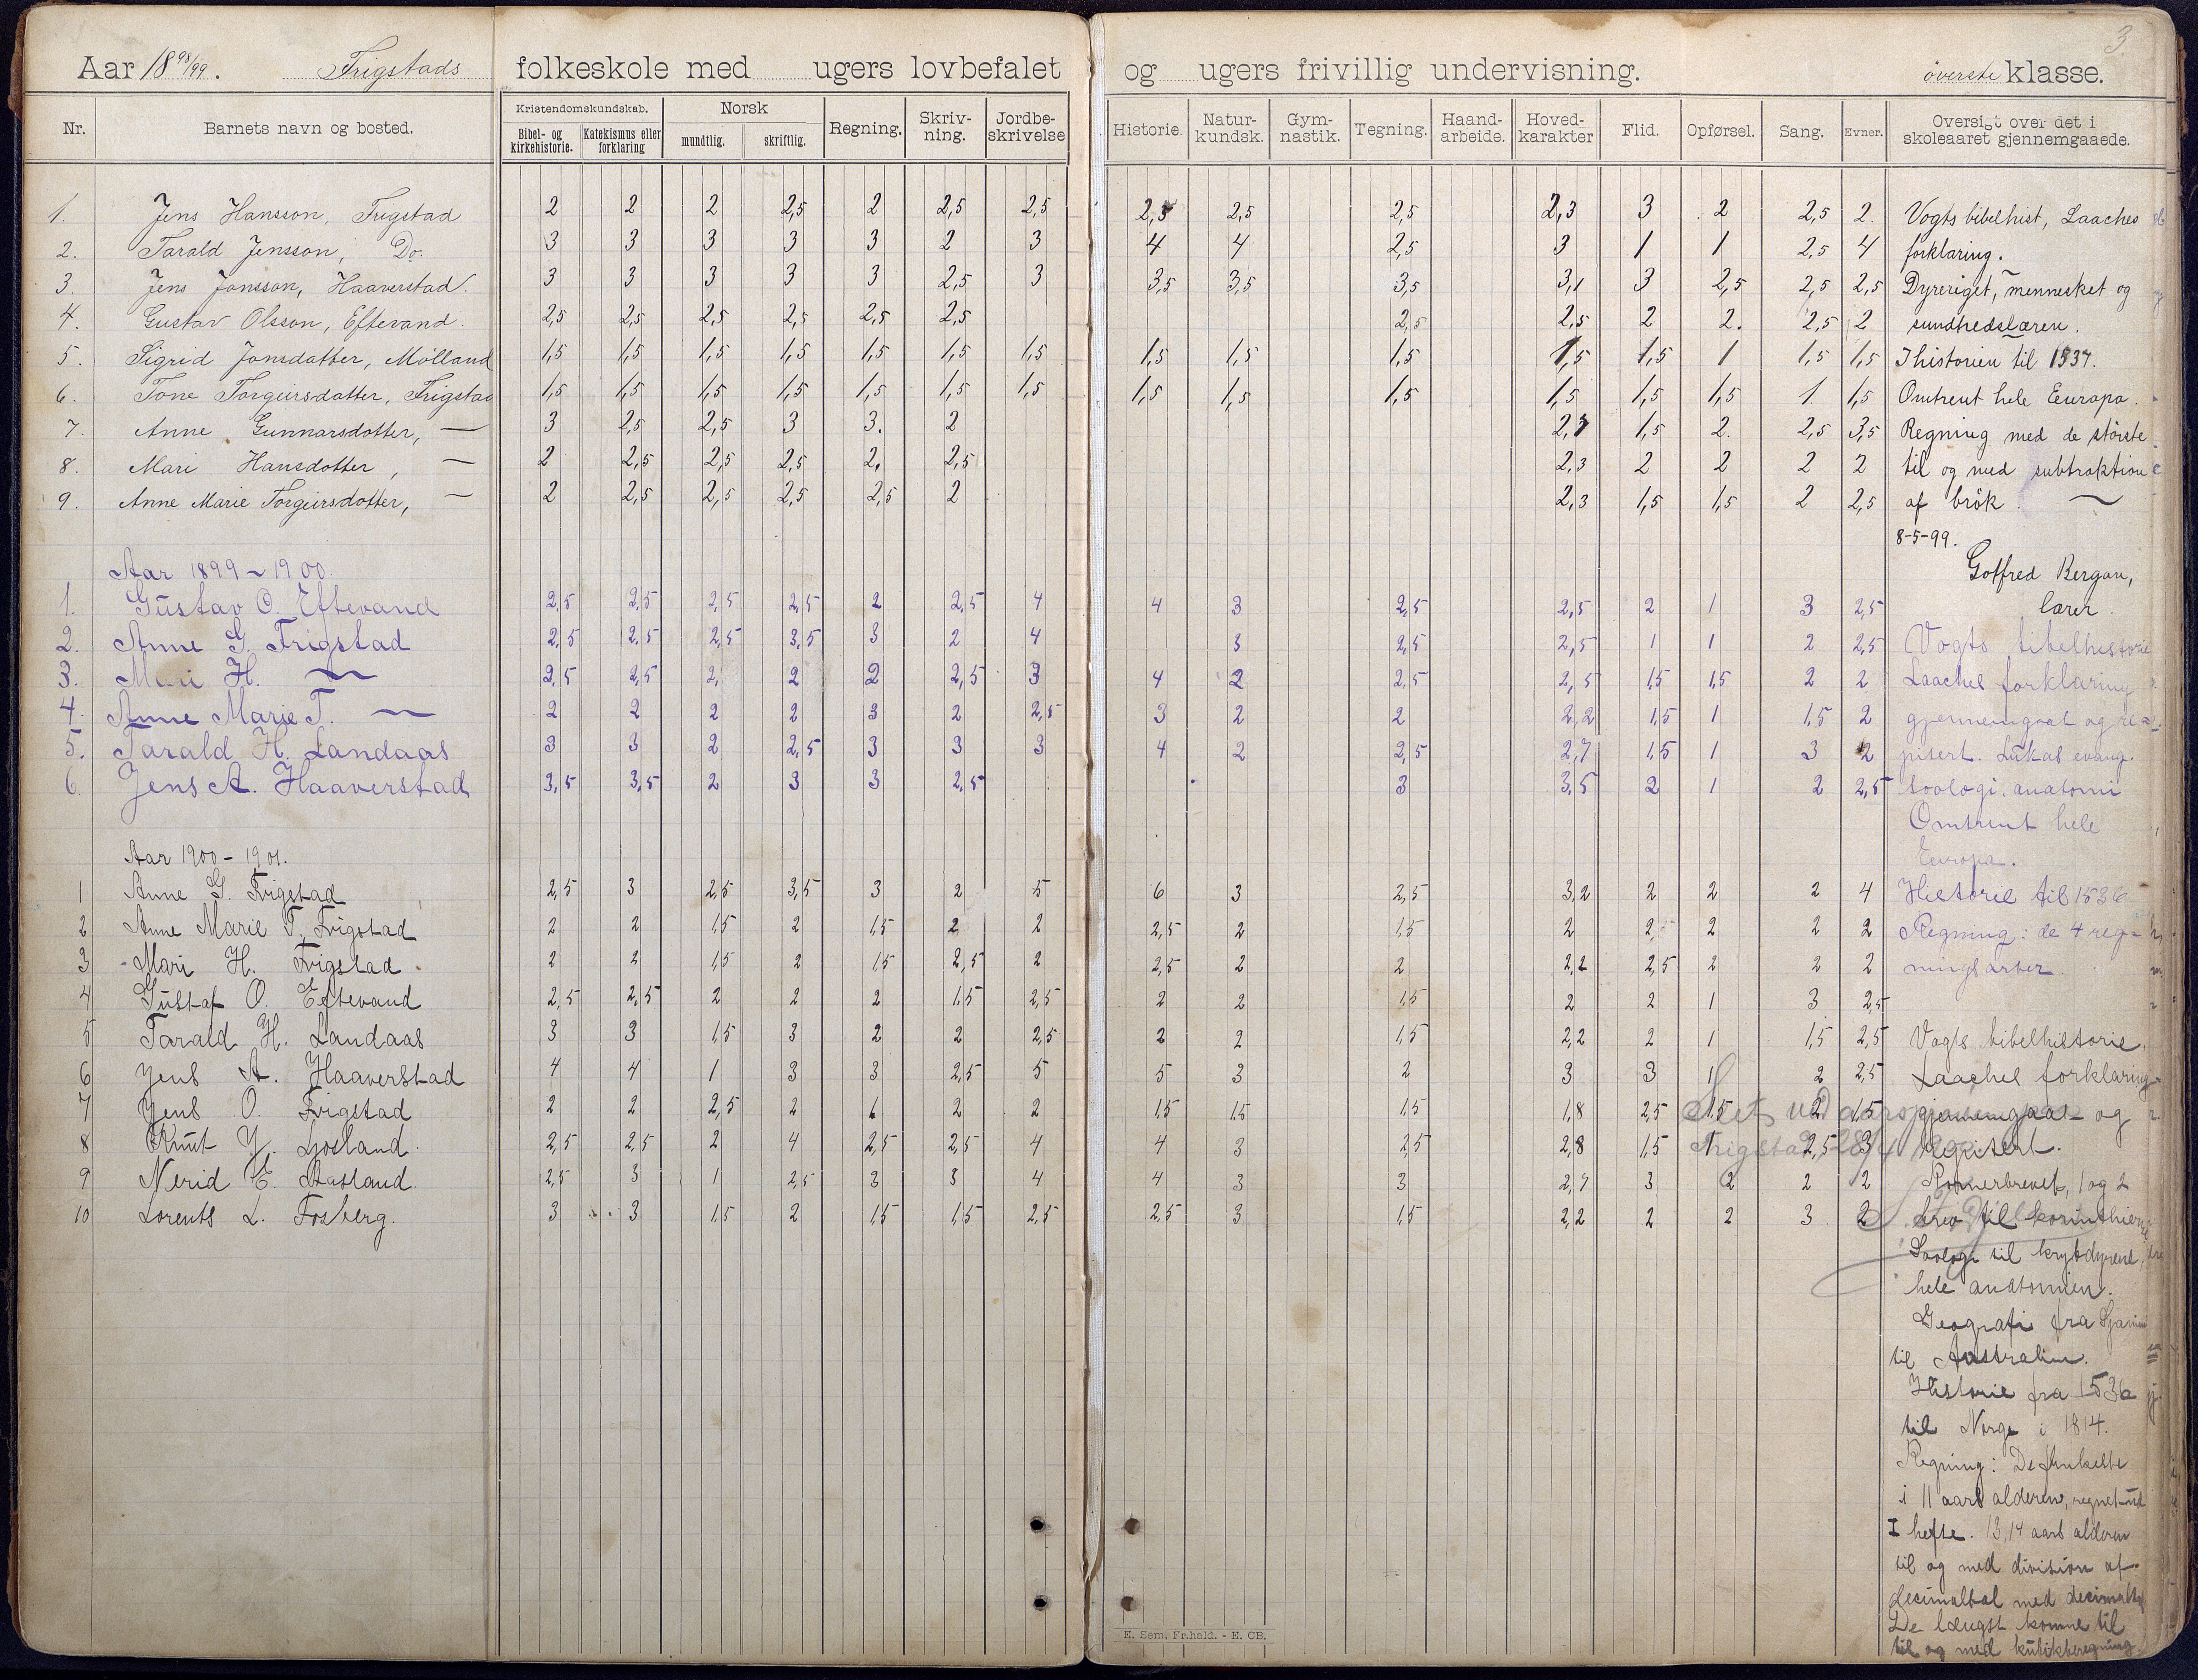 3.
Aar 18 98/99. Frigstads folkeskole med ugers lovbefalet og ugers frivillig undervisning. överste klasse.
Nr. Barnets navn og bosted. Kristendomskundskab. Bibel- og kirkehistorie. Katekismus eller forklaring Norsk mundtlig. skriftlig. Regning. Skriv-ning. Jordbe-skrivelse Historie. Natur-kundsk. Gym-nastik. Tegning. Haand-arbeide. Hoved-karakter Flid. Opførsel. Sang. Evner. Oversigt over det i skoleaaret gjennemgaaede.
1. Jens Hansson, Frigstad 2 2 2 2,5 2 2,5 2,5 2,5 2,5 2,5 2,3 3 2 2,5 2. Vogts bibelhist, Laaches
2. Tarald Jensson, Do. 3 3 3 3 3 2 3 4 4 2,5 3 1 1 2,5 4 forklaring.
3. Jens Jonsson, Haaverstad. 3 3 3 3 3 2,5 3 3,5 3,5 3,5 3,1 3 2,5 2,5 2,5 Dyreriget, mennesket og
4. Gustav Olsson, Eftevand. 2,5 2,5 2,5 2,5 2,5 2,5 2,5 2,5 2 2. 2,5 2 sundhedslæren.
5. Sigrid Jonsdatter, Mölland 1,5 1,5 1,5 1,5 1,5 1,5 1,5 1,5 1,5 1,5 1,5 1,5 1 1,5 1,5 I historien til 1537.
6. Tone Torgeirsdatter, Frigstad 1,5 1,5 1,5 1,5 1,5 1,5 1,5 1,5 1,5 1,5 1,5 1,5 1,5 1 1,5 Omtrent hele Europa.
7. Anne Gunnarsdotter, — 3 2,5 2,5 3 3. 2 2,7 1,5 2. 2,5 3,5 Regning med de störste
8. Mari Hansdotter, — 2 2,5 2,5 2,5 2, 2,5 2,3 2 2 2 2 til og med subtraktion
9. Anne Marie Torgeirsdotter, — 2 2,5 2,5 2,5 2,5 2 2,3 1,5 1,5 2 2,5 af brök.
8-5-99.
Aar 1899-1900. Gotfred Bergan,
1. Gustav O. Eftevand 2,5 2,5 2,5 2,5 2 2,5 4 4 3 2,5 2,5 2 1 3 2,5 lærer.
2. Anne G. Frigstad 2,5 2,5 2,5 3,5 3 2 4 3 2,5 2,5 1 1 2 2,5 Vogts bibelhistorie
3. Mari H. — 2,5 2,5 2, 2 2 2,5 3 4 2 2,5 2,5 1,5 1,5 2 2 Laaches forklaring
4. Anne Marie T. — 2 2 2 2 3 2 2,5 3 2 2 2,2 1,5 1 1,5 2 gjennemgaat og re=
5. Tarald H. Landaas 3 3 2 2,5 3 3 3 4 2 2,5 2,7 1,5 1 3 2 pitert. Lukas evang.
6. Jens A. Haaverstad 3,5 3,5 2 3 3 2,5 3 3,5 2 1 2 2,5 soologi, anatomi
Omtrent hele
Aar 1900-1901. Europa.
1 Anne G. Frigstad 2,5 3 2,5 3,5 3 2 5 6 3 2,5 3,2 2 2 2 4 Historie til 1536
2 Anne Marie T. Frigstad 2 2 1,5 2 1,5 2 2 2,5 2 1,5 2 2 2 2 2 Regning: de 4 reg=
3 Mari H. Frigstad 2 2 1,5 2 1,5 2,5 2 2,5 2 2 2,2 2,5 2 2 2 ningsarter.
4 Gustaf O. Eftevand 2,5 2,5 2 2 2 1,5 2,5 2 2 1,5 2 2 1 3 2,5
5 Tarald H. Landaas 3 3 1,5 3 2 2 2,5 2 2 1,5 2,2 2 1 1,5 2,5 Vogts bibelhistorie.
6 Jens A. Haaverstad 4 4 1 3 3 2,5 5 5 3 2 3 3 1 2 2,5 Laaches forklaring
7 Jens O. Frigstad 2 2 2,5 2 1 2 2 1,5 1,5 1,5 1,8 2,5 1,5 2 1,5 gjennemgaat og
8 Knut Y. Ljosland. 2,5 2,5 2 4 2,5 2,5 4 4 3 2,5 2,8 1,5 1 2,5 3 repitert.
9 Nerid E. Aasland. 2,5 3 1 2,5 3 3 4 4 3 3 2,7 3 2 2 2 Romerbrevet, 1 og 2
10 Lorents L. Fosberg. 3 3 1,5 2 1,5 1,5 2,5 2,5 3 1,5 2,2 2 2 3 2 brev til korinthierne
Soologi til krybdyrene,
hele anatomien.
Geografi fra Spanien
til Australien.
Historie fra 1536
til Norge i 1814.
Regning: De
i 11 aars alderen, regnet ud
I hefte. 13, 14 aars alderen
til og med division af
desimaltal med desimaltal
De længst komne til
til og med kubikberegning.
E. Sem, Fr.hald. - E. CB.